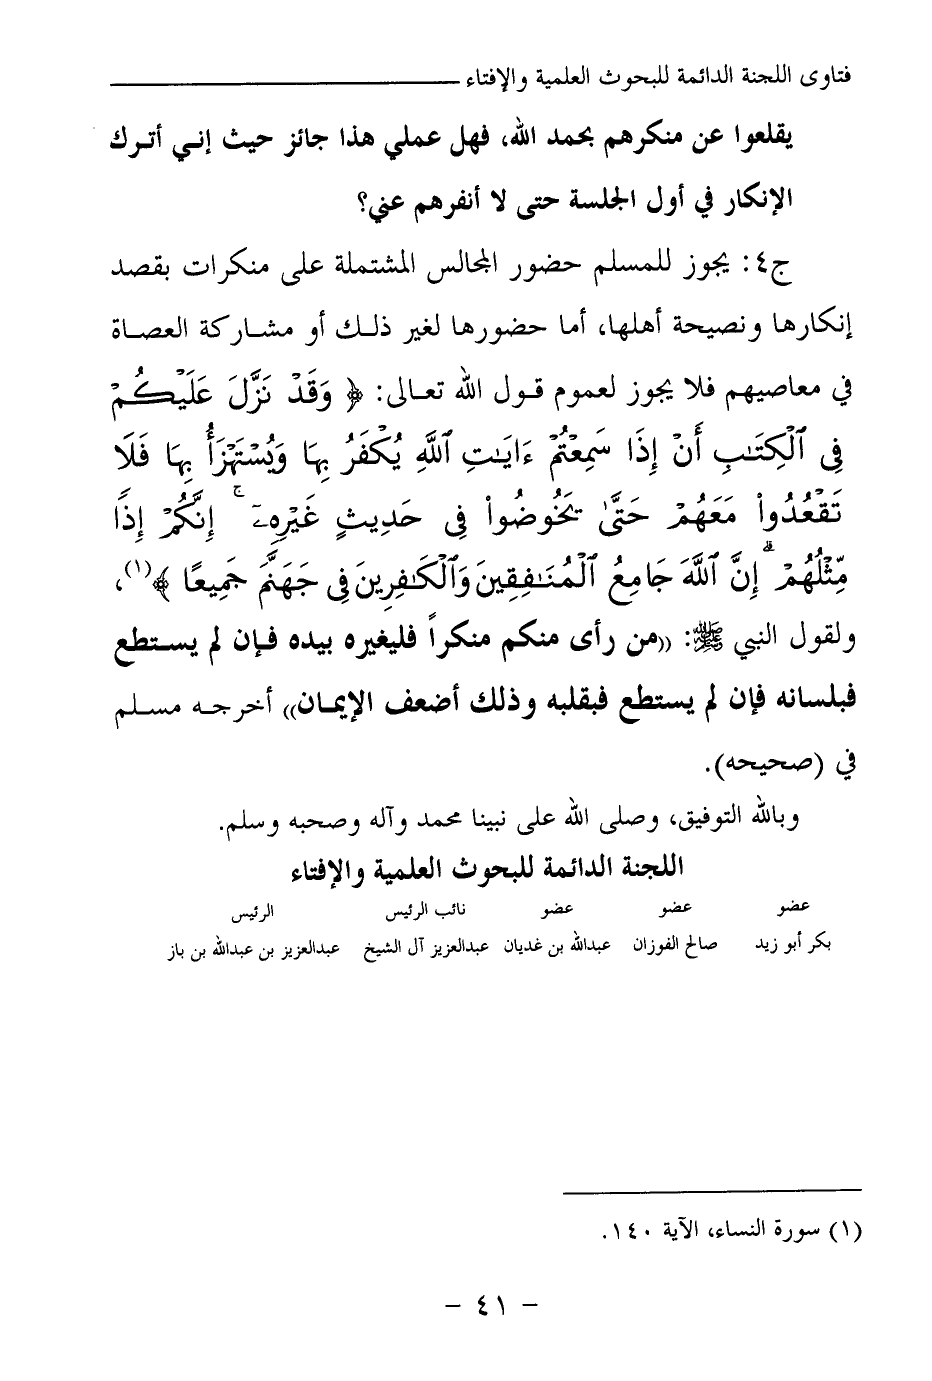 فتاوى اللجنة الدائمة للبحوث العلمية والإفتاء
يقلعوا عن منكرهم بحمد الله، فهل عملي هذا جائز حيث إنـي أتـرك
الإنكار في أول الجلسة حتى لا أنفرهم عني؟
ج٤: يجوز للمسلم حضور المجالس المشتملة على منكرات بقصد
إنكارها ونصيحة أهلها، أما حضورها لغير ذلـك أو مشـاركة العصـاة
في معاصيهم فلا يجوز لعموم قـول الله تعـالى: ﴿ وَقَدْ نَزَّلَ عَلَيْكُمْ
فِى ٱلْكِتَٰبِ أَنْ إِذَا سَمِعْتُمْ ءَايَٰتِ ٱللَّهِ يُكْفَرُ بِهَا وَيُسْتَهْزَأُ بِهَا فَلَا
تَقْعُدُوا۟ مَعَهُمْ حَتَّىٰ يَخُوضُوا۟ فِى حَدِيثٍ غَيْرِهِۦٓ ۚ إِنَّكُمْ إِذًا
مِّثْلُهُمْ ۗ إِنَّ ٱللَّهَ جَامِعُ ٱلْمُنَٰفِقِينَ وَٱلْكَٰفِرِينَ فِى جَهَنَّمَ جَمِيعًا ﴾(١)،
ولقول النبي ﷺ: ((من رأى منكم منكراً فليغيره بيده فـإن لم يسـتطع
فبلسانه فإن لم يستطع فبقلبه وذلك أضعف الإيمـان)) أخرجـه مسـلم
في (صحيحه).
وبالله التوفيق، وصلى الله على نبينا محمد وآله وصحبه وسلم.
اللجنة الدائمة للبحوث العلمية والإفتاء
عضو عضو عضو نائب الرئيس الرئيس
بكر أبو زيد صالح الفوزان عبدالله بن غديان عبدالعزيز آل الشيخ عبدالعزيز بن عبدالله بن باز
(١) سورة النساء، الآية ١٤٠.
- ٤١ -